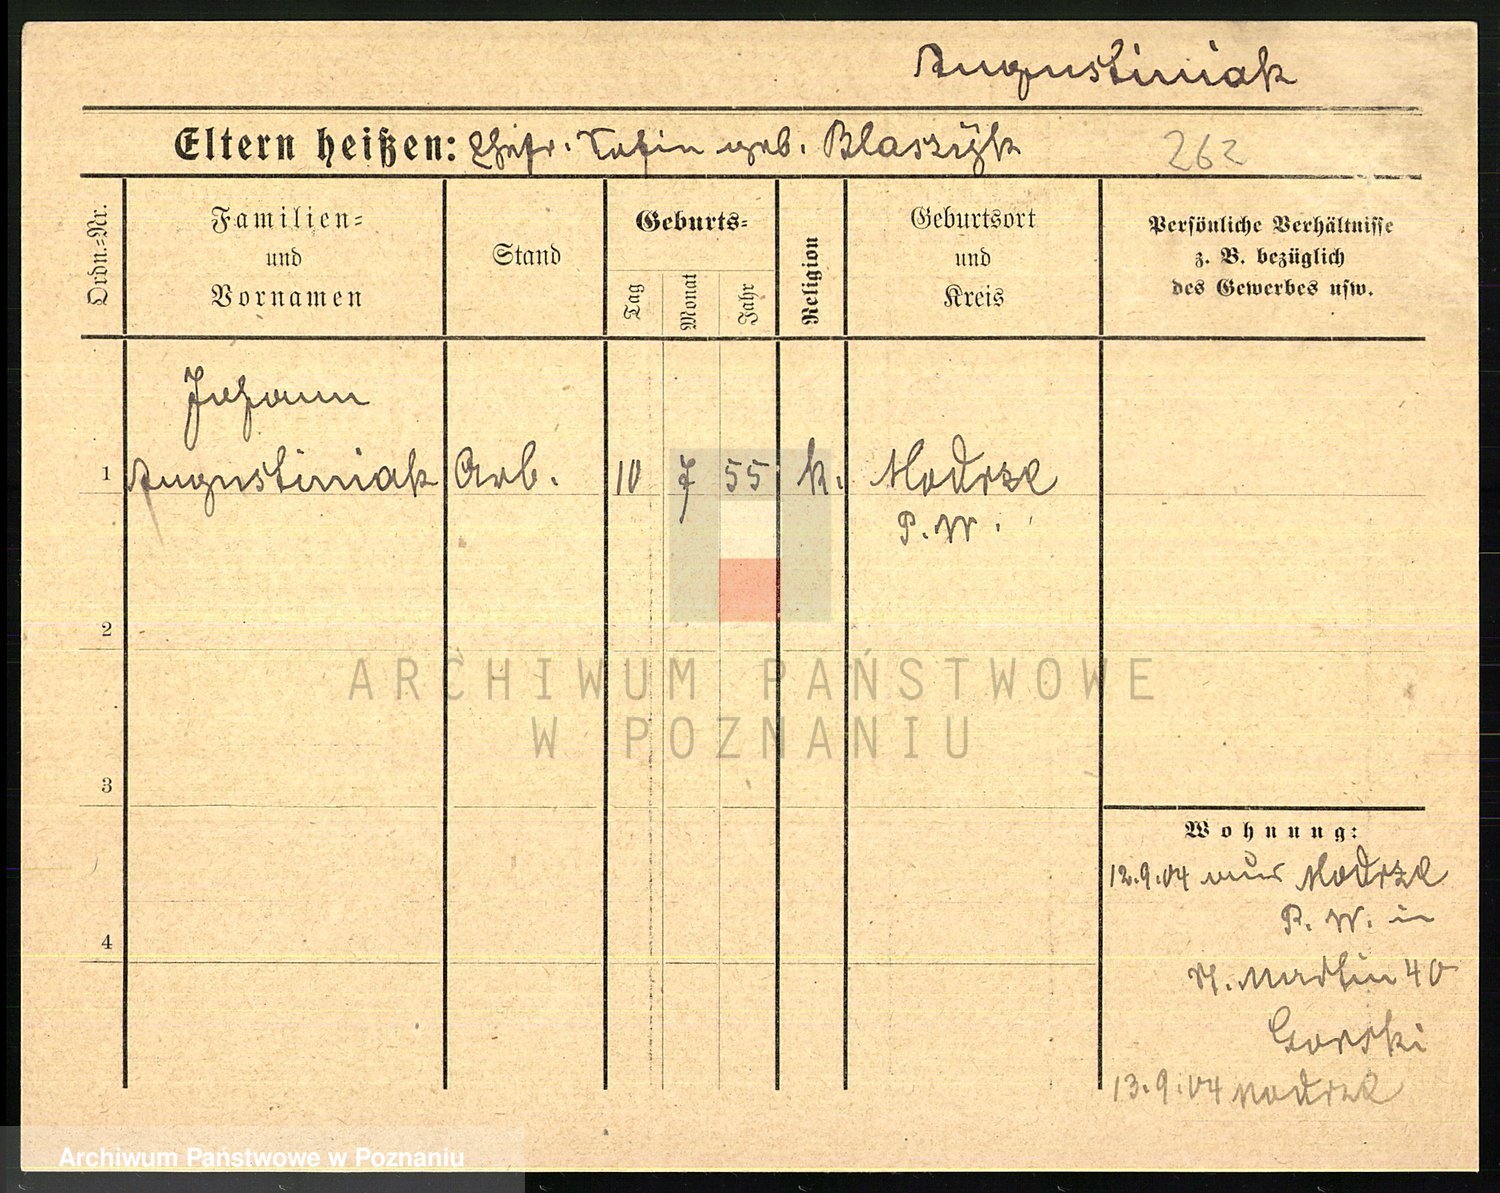 Augustiniak
Eltern heißen: Ehefr. geb. Blaszÿk 262
Ordn.-Nr.
Familien-
und
Vornamen
Stand
Geburts-
Tag
Monat
Jahr
Religion
Geburtsort
und
Kreis
Persönliche Verhältnisse
z. B. bezüglich
des Gewerbes usw.
Johann
1 Augustiniak Arb. 10 7 55 k. Modrze
P. W.
2
ARCHIWUM PAŃSTWOWE
W POZNANIU
3
Wohnung:
12.9.04 aus Modrze
4
P. W. in
St. Martin 40
Gorski
13.9.04 Modrze
Archiwum Państwowe w Poznaniu